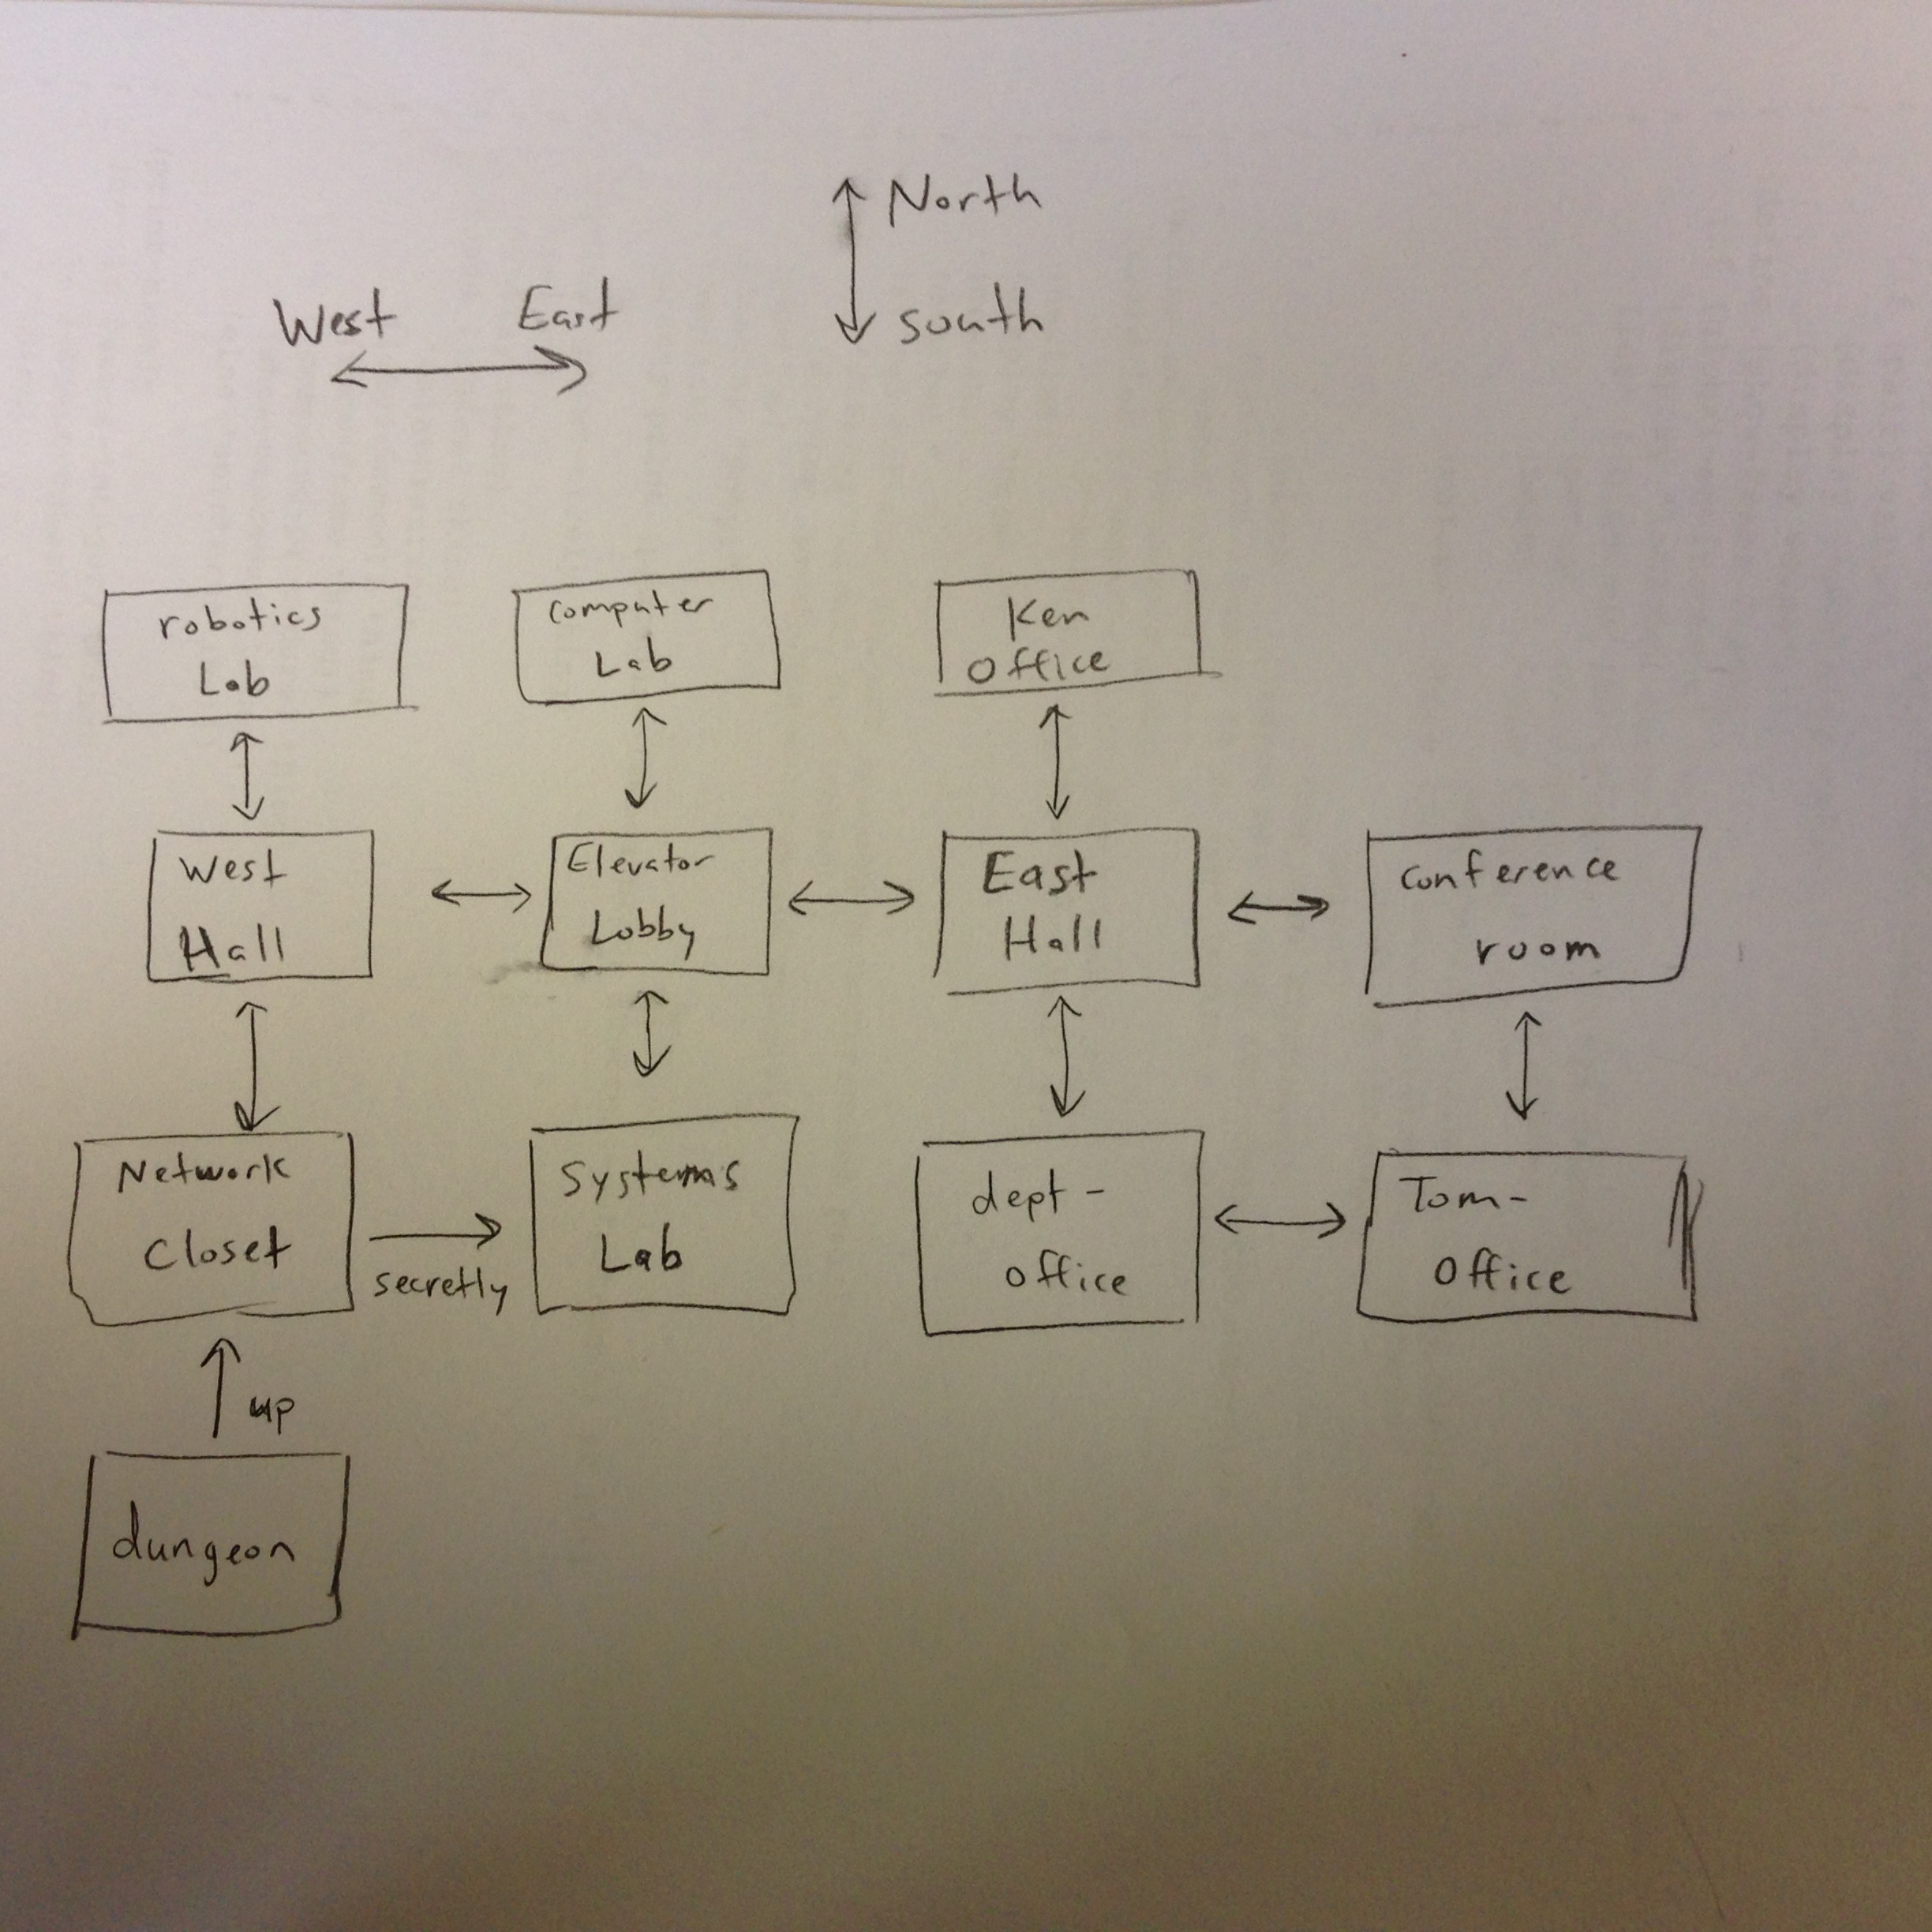 North
West East
south
robotics
Lab
computer
Lab
Ken
Office
West
Hall
Elevator
Lobby
East
Hall
conference
room
Network
Closet
secretly
Systems
Lab
dept-
office
Tom-
Office
up
dungeon